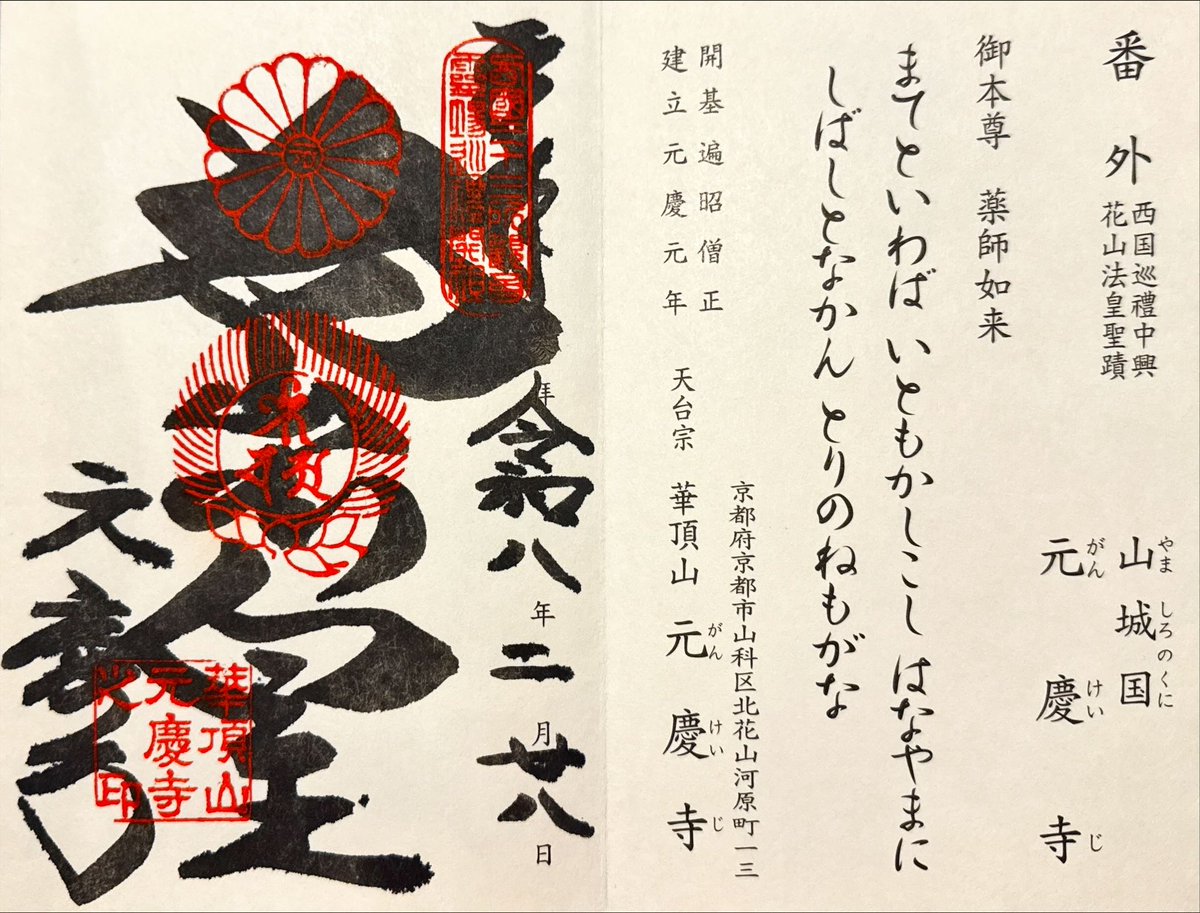 番外
西国巡禮中興
花山法皇聖蹟
やま しろのくに
山城国
がん けい じ
元慶寺
御本尊 薬師如来
まてといわば いともかしこし はなやまに
しばしとなかん とりのねもがな
開基遍昭僧正
建立元慶元年
京都府京都市山科区北花山河原町一三
天台宗 華頂山 元慶寺
がん けい じ
令和八年二月廿八日
元慶寺
華頂山
元慶寺
之印